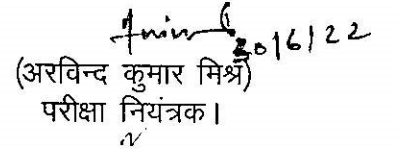 30/6/22
(अरविन्द कुमार मिश्र)
परीक्षा नियंत्रक।